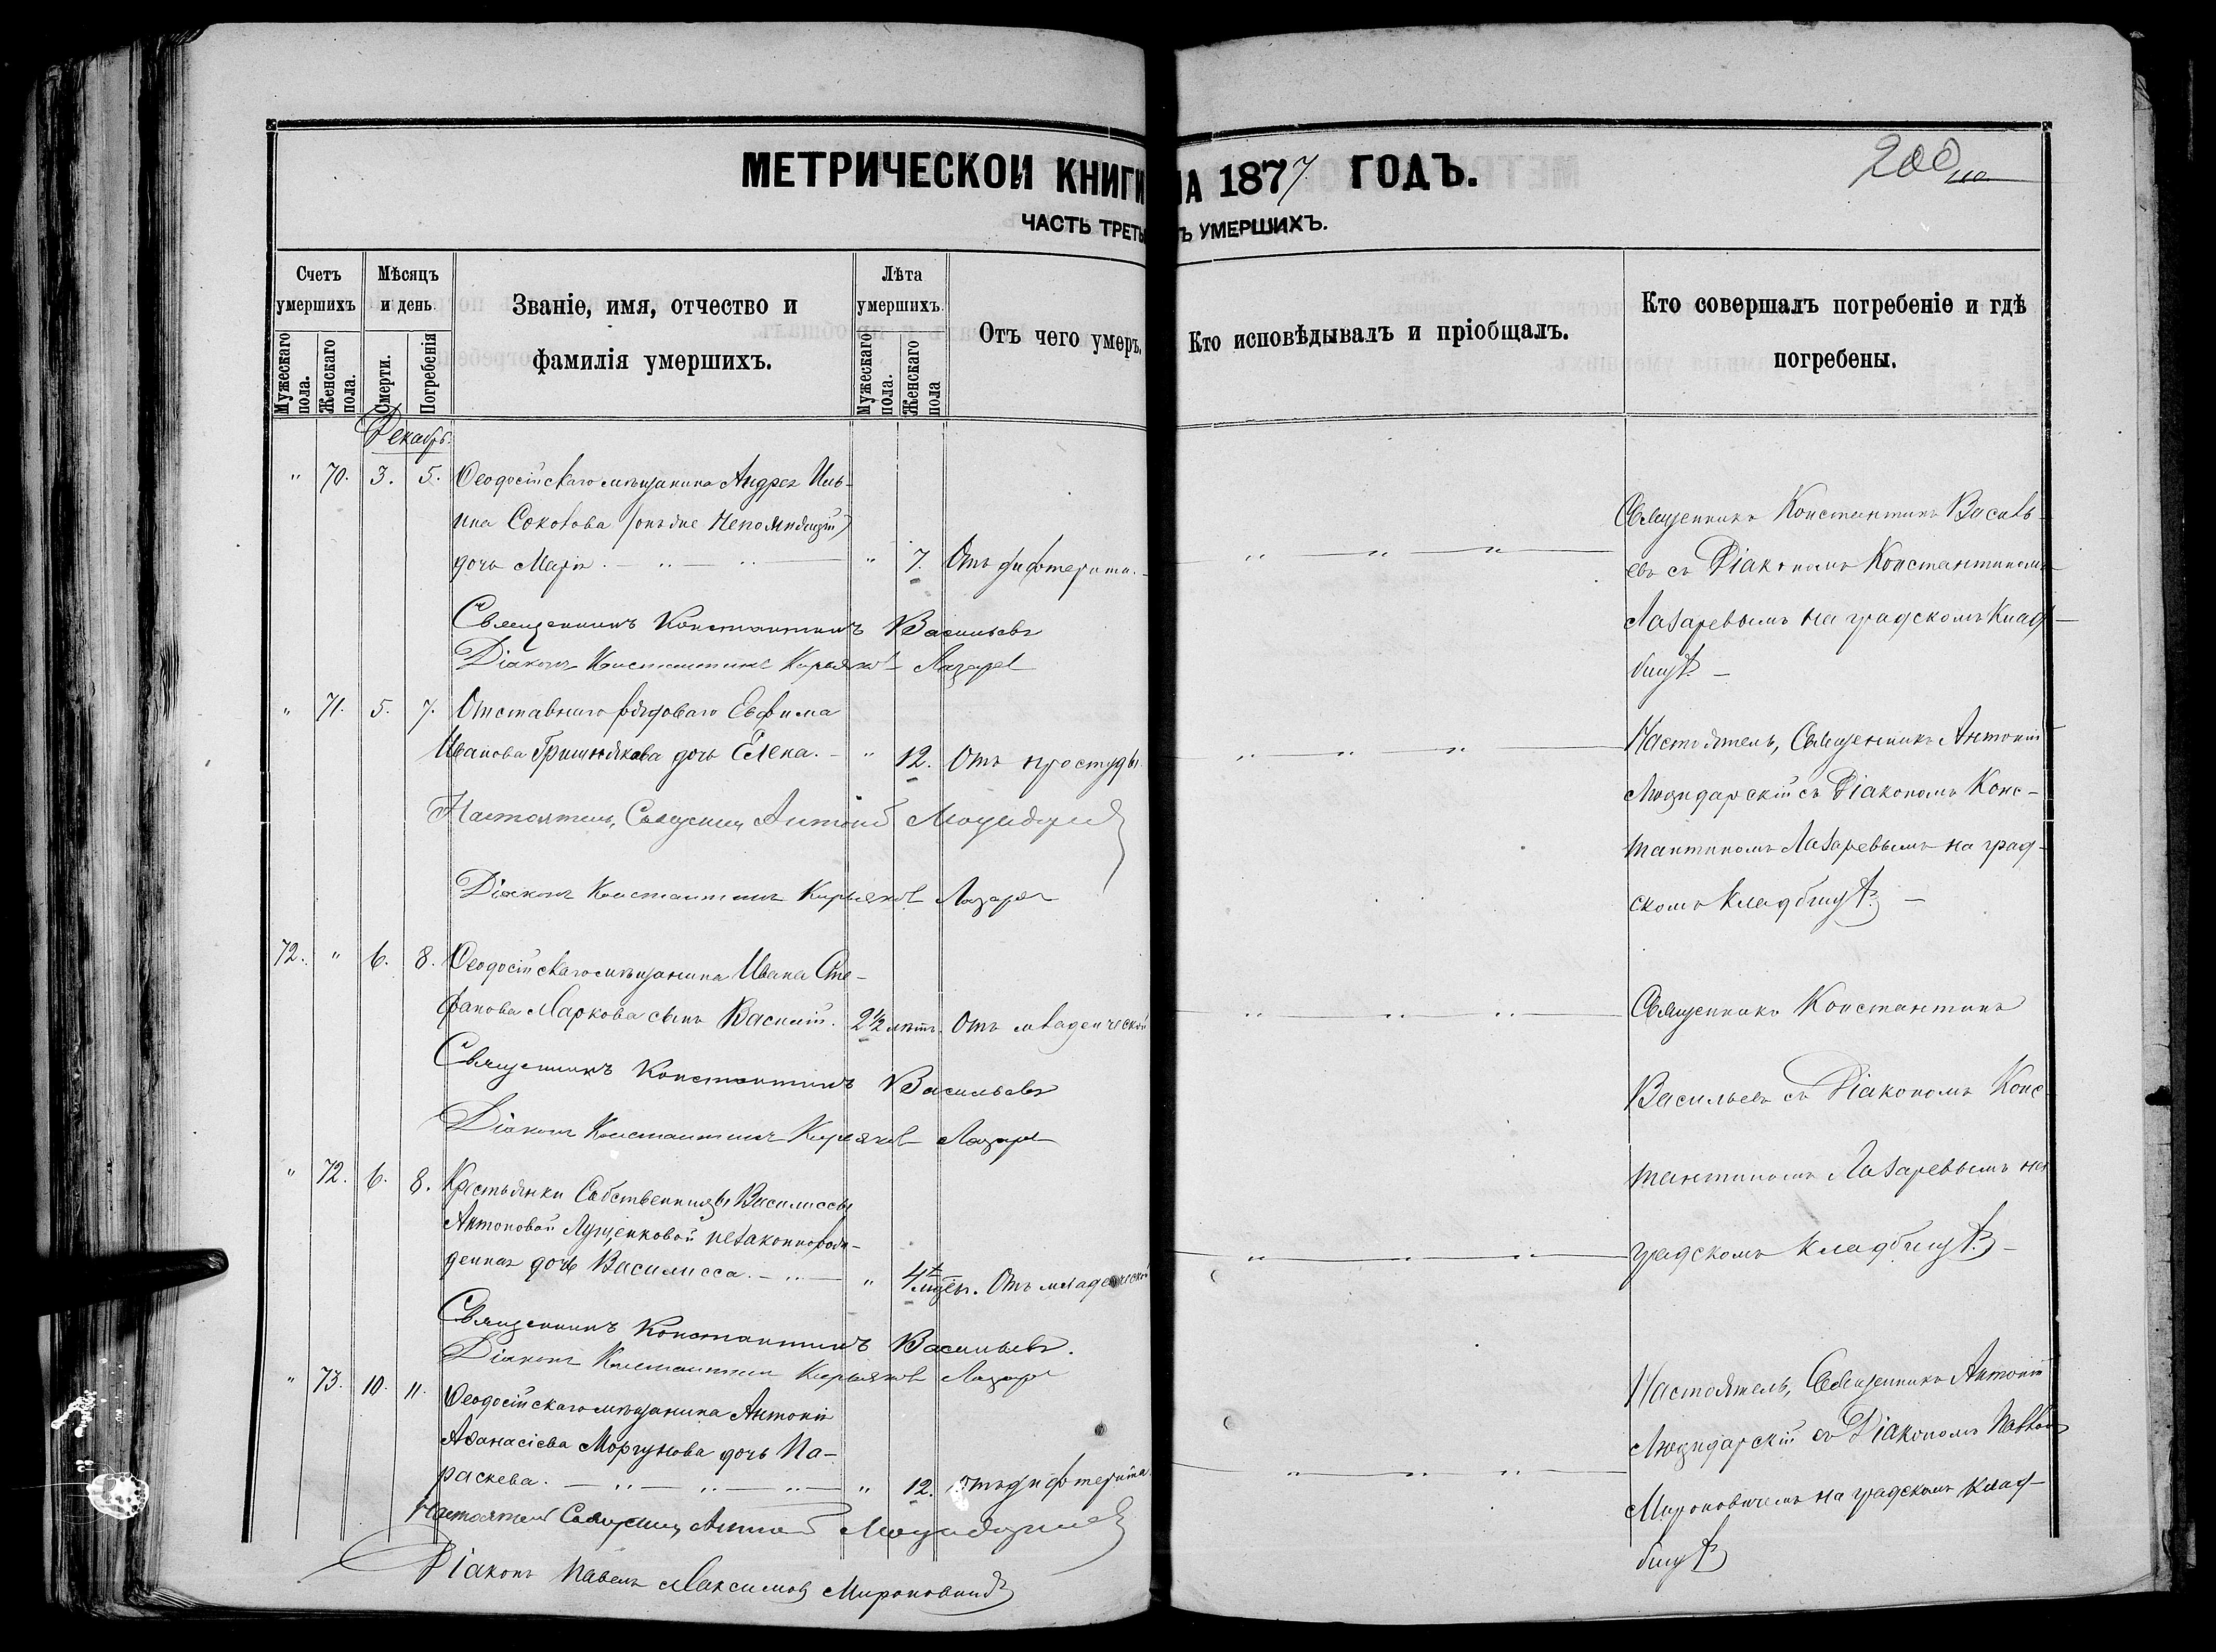 МЕТРИЧЕСКОЙ КНИГИ НА 1877 ГОДЪ.
200
ЧАСТЬ ТРЕТЬ Ъ УМЕРШИХЪ.
Счетъ умершихъ
Мѣсяцъ и день.
Званіе, имя, отчество и фамилія умершихъ.
Лѣта умершихъ.
Отъ чего умеръ.
Кто исповѣдывалъ и пріобщалъ.
Кто совершалъ погребеніе и гдѣ погребены.
Мужескаго пола.
Женскаго пола.
Смерти.
Погребенія
Мужескаго пола.
Женскаго пола
Декабрь.
" 70. 3. 5. Ѳеодосійскаго мѣщанина Андрея Иль-
ина Соколова
дочь Марія. " 7. Отъ дифтерита.
Священникъ Константинъ Васильевъ
Діаконъ Константинъ Кирьяковъ Лазаревъ
Священникъ Константинъ Василь-
евъ съ Діакономъ Константиномъ
Лазаревымъ на градскомъ клад-
бищѣ
" 71. 5. 7. Отставнаго рядоваго Евфима
Иванова Гришнякова дочь Елена. " 12. Отъ простуды.
Настоятель, Священникъ Антоній
Діаконъ Константинъ Кирьяковъ Лазаревъ
Настоятель, Священникъ Антоній
съ Діакономъ Конс-
тантиномъ Лазаревымъ на град-
скомъ кладбищѣ
72. " 6. 8. Ѳеодосійскаго мѣщанина Ивана Сте-
фанова Маркова сынъ Василій. 2½ лѣтъ. Отъ младенческой
Священникъ Константинъ Васильевъ
Діаконъ Константинъ Кирьяковъ Лазаревъ
" 72. 6. 8. Крестьянки Собственницы Василиссы
Антоновой Луценковой незаконнорож-
денная дочь Василисса. " 4 Отъ младенческой
Священникъ Константинъ Васильевъ.
Діаконъ Константинъ Кирьяковъ Лазаревъ
Священникъ Константинъ
Васильевъ съ Діакономъ Конс-
тантиномъ Лазаревымъ на
градскомъ кладбищѣ
" 73. 10. 11. Ѳеодосійскаго мѣщанина Антонія
Аѳанасіева Моргунова дочь Па-
раскева. " 12. Отъ дифтерита.
Настоятель Священникъ Антоній
Діаконъ Павелъ Максимовъ Мироновичъ
Настоятель, Священникъ Антоній
съ Діакономъ Павломъ
Мироновичемъ на градскомъ клад-
бищѣ